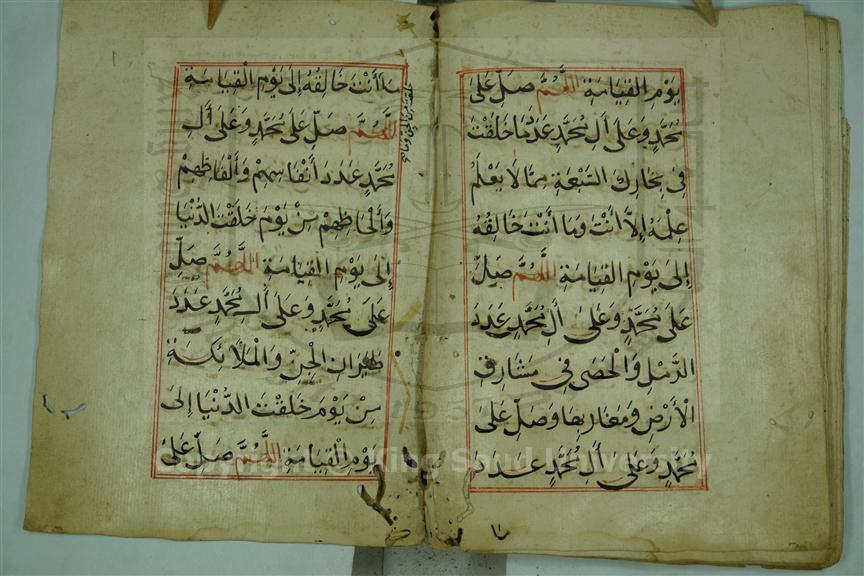 يَوْمِ القِيَامَةِ اللَّهُمَّ صَلِّ عَلَى
مُحَمَّدٍ وَعَلَى أَلِ مُحَمَّدٍ عَدَدَ مَا خَلَقْتَ
فِي بِحَارِكَ السَّبْعَةِ مِمَّا لَا يَعْلَمُ
عِلْمَهُ إِلَّا أَنْتَ وَمَا أَنْتَ خَالِقُهُ
إِلَى يَوْمِ القِيَامَةِ اللَّهُمَّ صَلِّ
عَلَى مُحَمَّدٍ وَعَلَى أَلِ مُحَمَّدٍ عَدَدَ
الرَّمْلِ وَالْحَصَى فِي مَشَارِقِ
الْأَرْضِ وَمَغَارِبِهَا وَصَلِّ عَلَى
مُحَمَّدٍ وَعَلَى أَلِ مُحَمَّدٍ عَدَدَ
مَا أَنْتَ خَالِقُهُ إِلَى يَوْمِ الْقِيَامَةِ
اللَّهُمَّ صَلِّ عَلَى مُحَمَّدٍ وَعَلَى أَلِ
مُحَمَّدٍ عَدَدَ أَنْفَاسِهِمْ وَأَلْفَاظِهِمْ
وَأَلْحَاظِهِمْ مِنْ يَوْمَ خَلَقْتَ الدُّنْيَا
إِلَى يَوْمِ الْقِيَامَةِ اللَّهُمَّ صَلِّ
عَلَى مُحَمَّدٍ وَعَلَى أَلِ مُحَمَّدٍ عَدَدَ
طَيَرَانِ الْجِنِّ وَالْمَلَائِكَةِ
مِنْ يَوْمَ خَلَقْتَ الدُّنْيَا إِلَى
يَوْمِ الْقِيَامَةِ اللَّهُمَّ صَلِّ عَلَى
خلقت من الجن وما
Copyright © King Saud University
1957